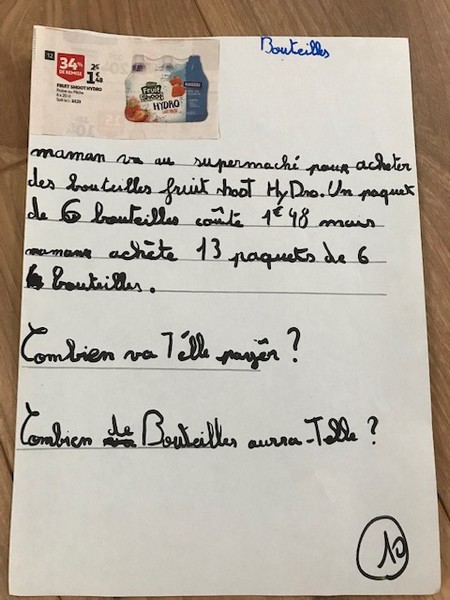 Bouteilles
12
34%
DE REMISE
2€
1€48
FRUIT SHOOT HYDRO
Fruit
Shoot
HYDRO
maman va au supermaché pour acheter
des bouteilles fruit shoot HyDro. Un paquet
de 6 bouteilles coûte 1€48 mais
maman achète 13 paquets de 6
bouteilles.
Combien va T'élle payêr ?
Combien de Bouteilles aurra-Telle ?
10